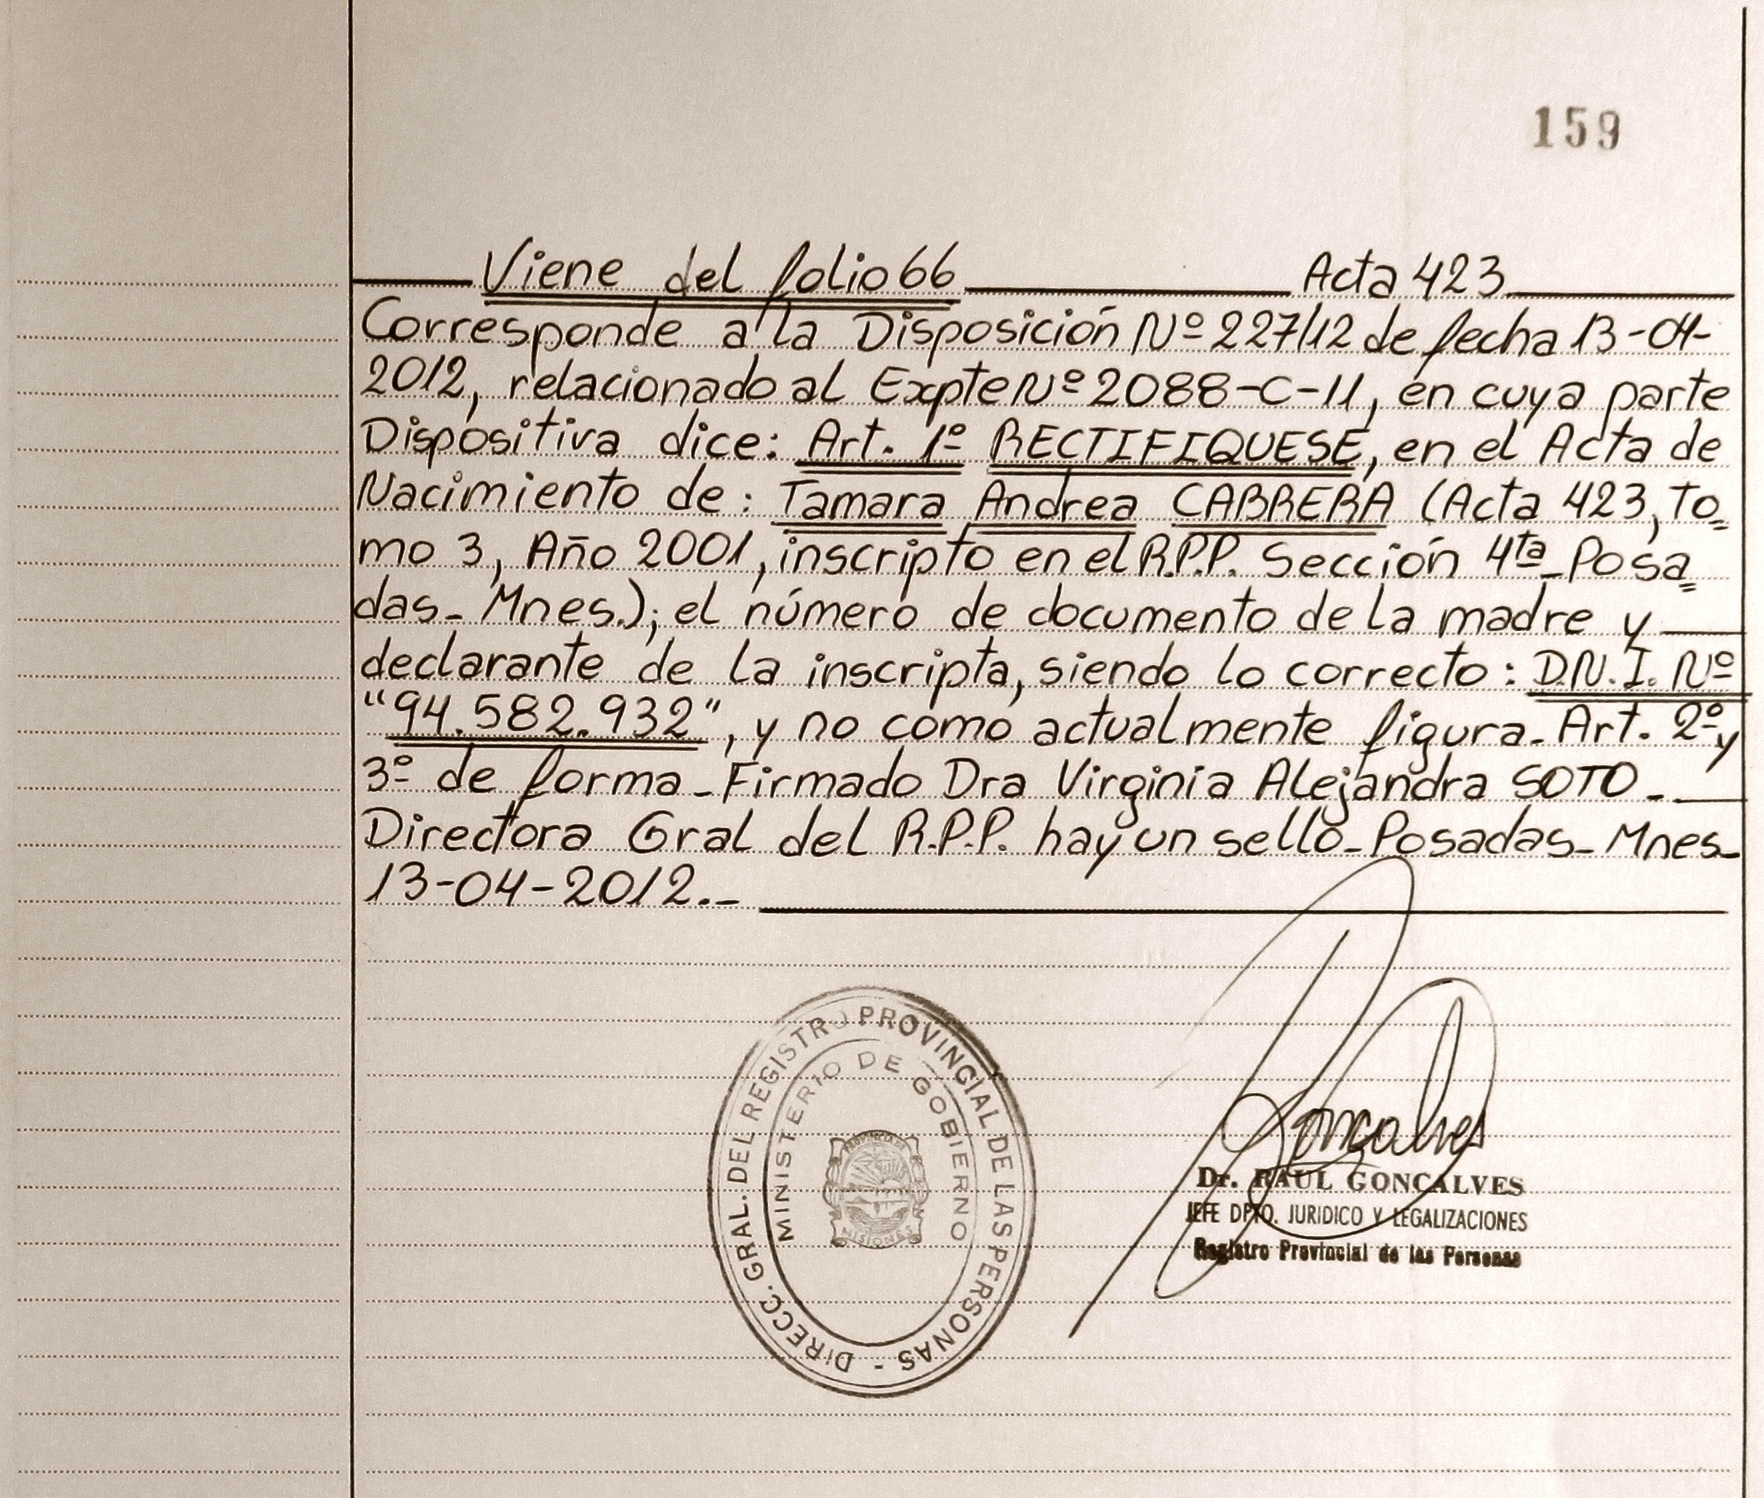 159
Viene del folio 66 Acta 423
Corresponde a la Disposición Nº 227/12 de fecha 13-04-
2012, relacionado al Expte Nº 2088-C-11, en cuya parte
Dispositiva dice: Art. 1º RECTIFIQUESE, en el Acta de
Nacimiento de: Tamara Andrea CABRERA (Acta 423, To=
mo 3, Año 2001, inscripto en el R.P.P. Sección 4ta_Posa=
das_ Mnes.); el número de documento de la madre y
declarante de la inscripta, siendo lo correcto: D.N.I. Nº
"94.582.932", y no como actualmente figura_ Art. 2º y
3º de forma_Firmado Dra Virginia Alejandra SOTO_
Directora Gral del R.P.P. hay un sello_Posadas_Mnes_
13-04-2012._
DIRECC. GRAL. DEL REGISTRO PROVINCIAL DE LAS PERSONAS -
MINISTERIO DE GOBIERNO
PROVINCIA DE
MISIONES
Gonçalves
Dr. RAUL GONCALVES
JEFE DPTO. JURIDICO Y LEGALIZACIONES
Registro Provincial de las Personas